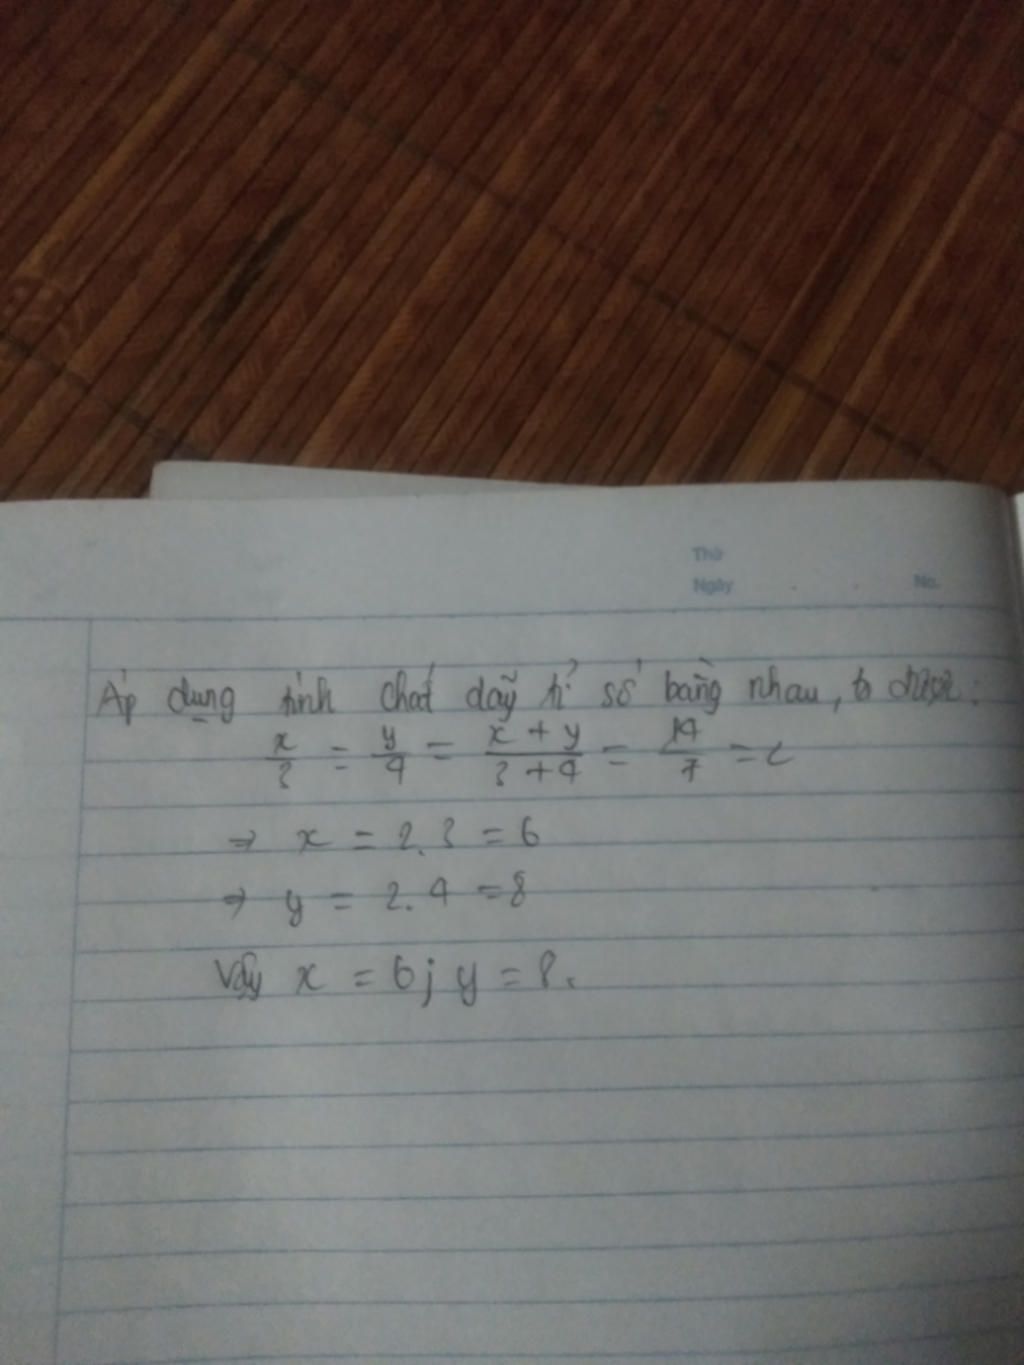 Thứ
Ngày No.
Áp dụng tính chất dãy tỉ số bằng nhau, ta được:
x/3 = y/4 = x + y/3 + 4 = 14/7 = 2
⇒ x = 2.3 = 6
⇒ y = 2.4 = 8
Vậy x = 6; y = 8.